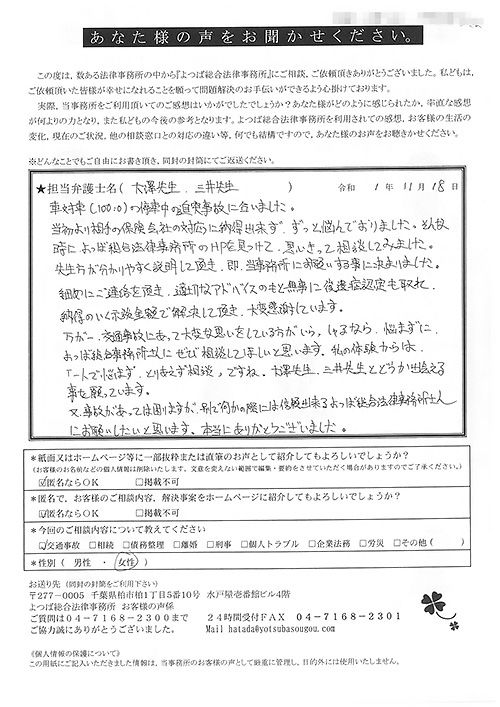 あなた様の声をお聞かせください。
この度は、数ある法律事務所の中から『よつば総合法律事務所』にご相談、ご依頼頂きありがとうございました。私どもは、
ご依頼頂いた皆様が幸せになれることを願って問題解決のお手伝いができるよう心掛けております。
実際、当事務所をご利用頂いてのご感想はいかがでしたでしょうか？あなた様がどのように感じられたか、率直な感想
が何よりの力となり、また私どもの今後の参考となります。よつば総合法律事務所を利用されての感想、お客様の生活の
変化、現在のご状況、他の相談窓口との対応の違い等、何でも結構ですので、あなた様のお声をお聴きかせください。
※どんなことでもご自由にお書き頂き、同封の封筒にてご返送ください。
★担当弁護士名（大澤先生、三井先生）令和 1年 11月 18日
車対車（100:0）の停車中の追突事故に合いました。
当初より相手の保険会社の対応に納得出来ず、ずっと悩んでおりました。そんな
時によつば総合法律事務所のHPを見つけて、思いきって相談してみました。
先生方が分かりやすく説明して頂き、即、当事務所にお願いする事に決まりました。
細めにご連絡を頂き、適切なアドバイスのもと無事に後遺症認定も取れ、
納得のいく示談金額で解決して頂き、大変感謝しています。
万が一、交通事故にあって大変な思いをしている方がいらっしゃるなら、悩まずに、
よつば総合事務所さんにぜひ相談してほしいと思います。私の体験からは、
「一人で悩まず、とりあえず相談」ですね。大澤先生、三井先生とどうか出会える
事も願っています。
又、事故があっては困りますが、別に何かの際には信頼出来るよつば総合法律事務所さん
にお願いしたいと思います。本当にありがとうございました。
＊紙面又はホームページ等に一部抜粋または直筆のお声として紹介してもよろしいでしょうか？
（お客様のお名前などの個人情報は削除いたします。文意を変えない範囲で編集・要約をさせていただく場合がありますのでご了承ください。）
☑匿名ならＯＫ □掲載不可
＊匿名で、お客様のご相談内容、解決事案をホームページに紹介してもよろしいでしょうか？
☑匿名ならＯＫ □掲載不可
＊今回のご相談内容について教えてください
☑交通事故 □相続 □債務整理 □離婚 □刑事 □個人トラブル □企業法務 □労災 □その他（ ）
＊性別（ 男性 ・ 女性 ）
お送り先（同封の封筒をご利用下さい）
〒277－0005 千葉県柏市柏1丁目5番10号 水戸屋壱番館ビル4階
よつば総合法律事務所 お客様の声係
ご質問は04－7168－2300まで ２４時間受付ＦＡＸ 04－7168－2301
ご協力誠にありがとうございました。 Mail hatada@yotsubasougou.com
《個人情報の保護について》
この用紙にご記入いただきました情報は、当事務所のお客様の声として厳重に管理し、目的外には使用いたしません。